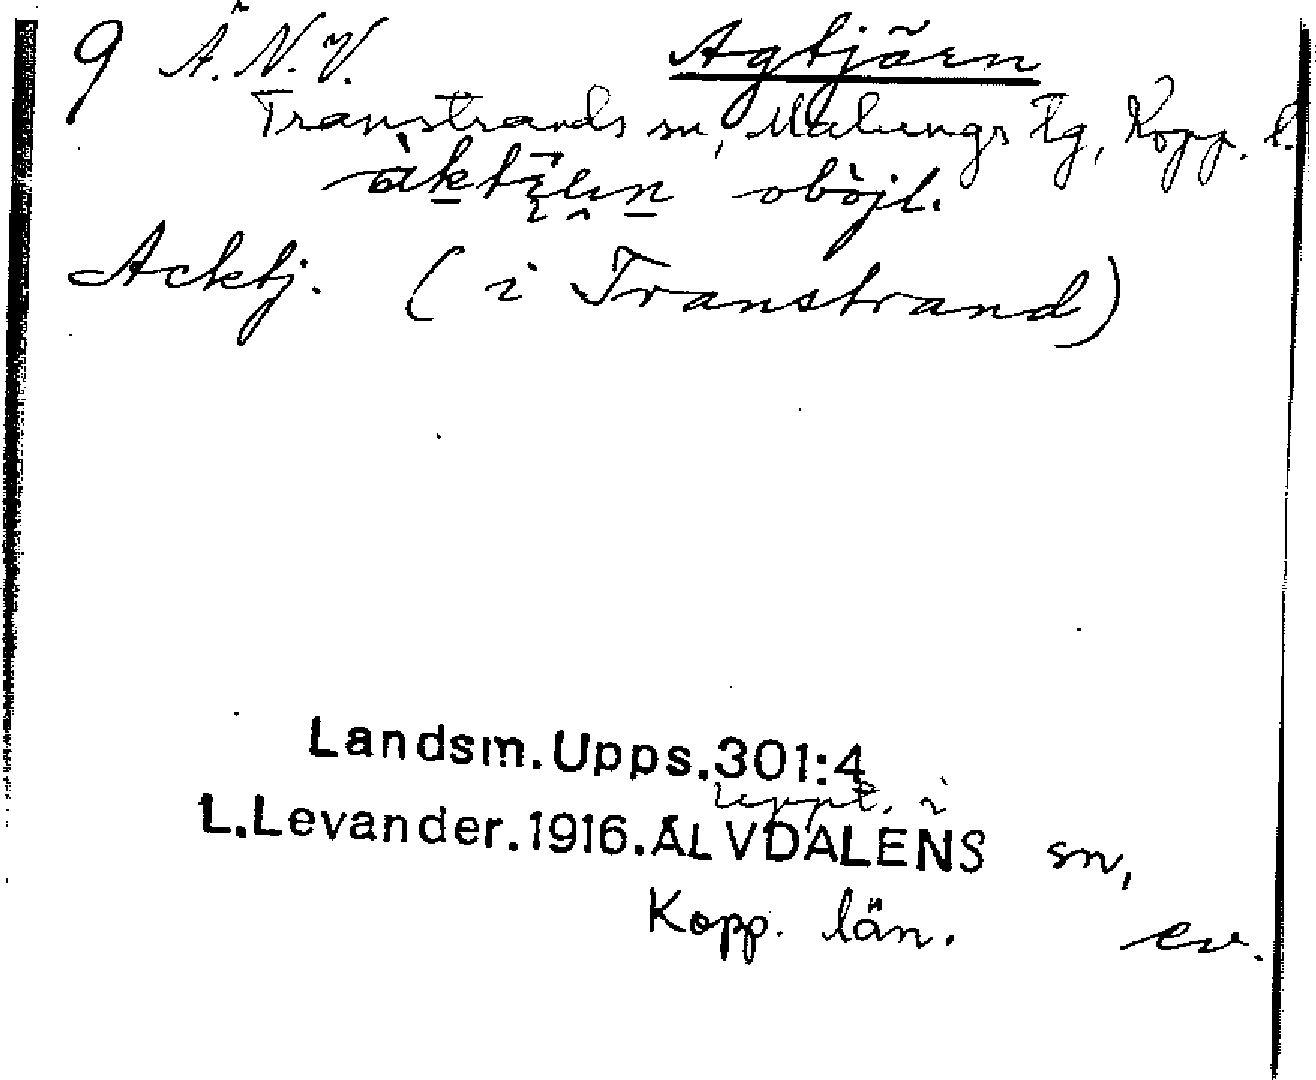 9 Ä.N.V. Agtjärn
Transtrands sn, Malungs tg, Kopp. l.
oböjl.
Acktj. (i Transtrand)
Landsm.Upps.301:4
uppt. i
L.Levander.1916.ÄLVDALENS sn,
Kopp. län. ev.